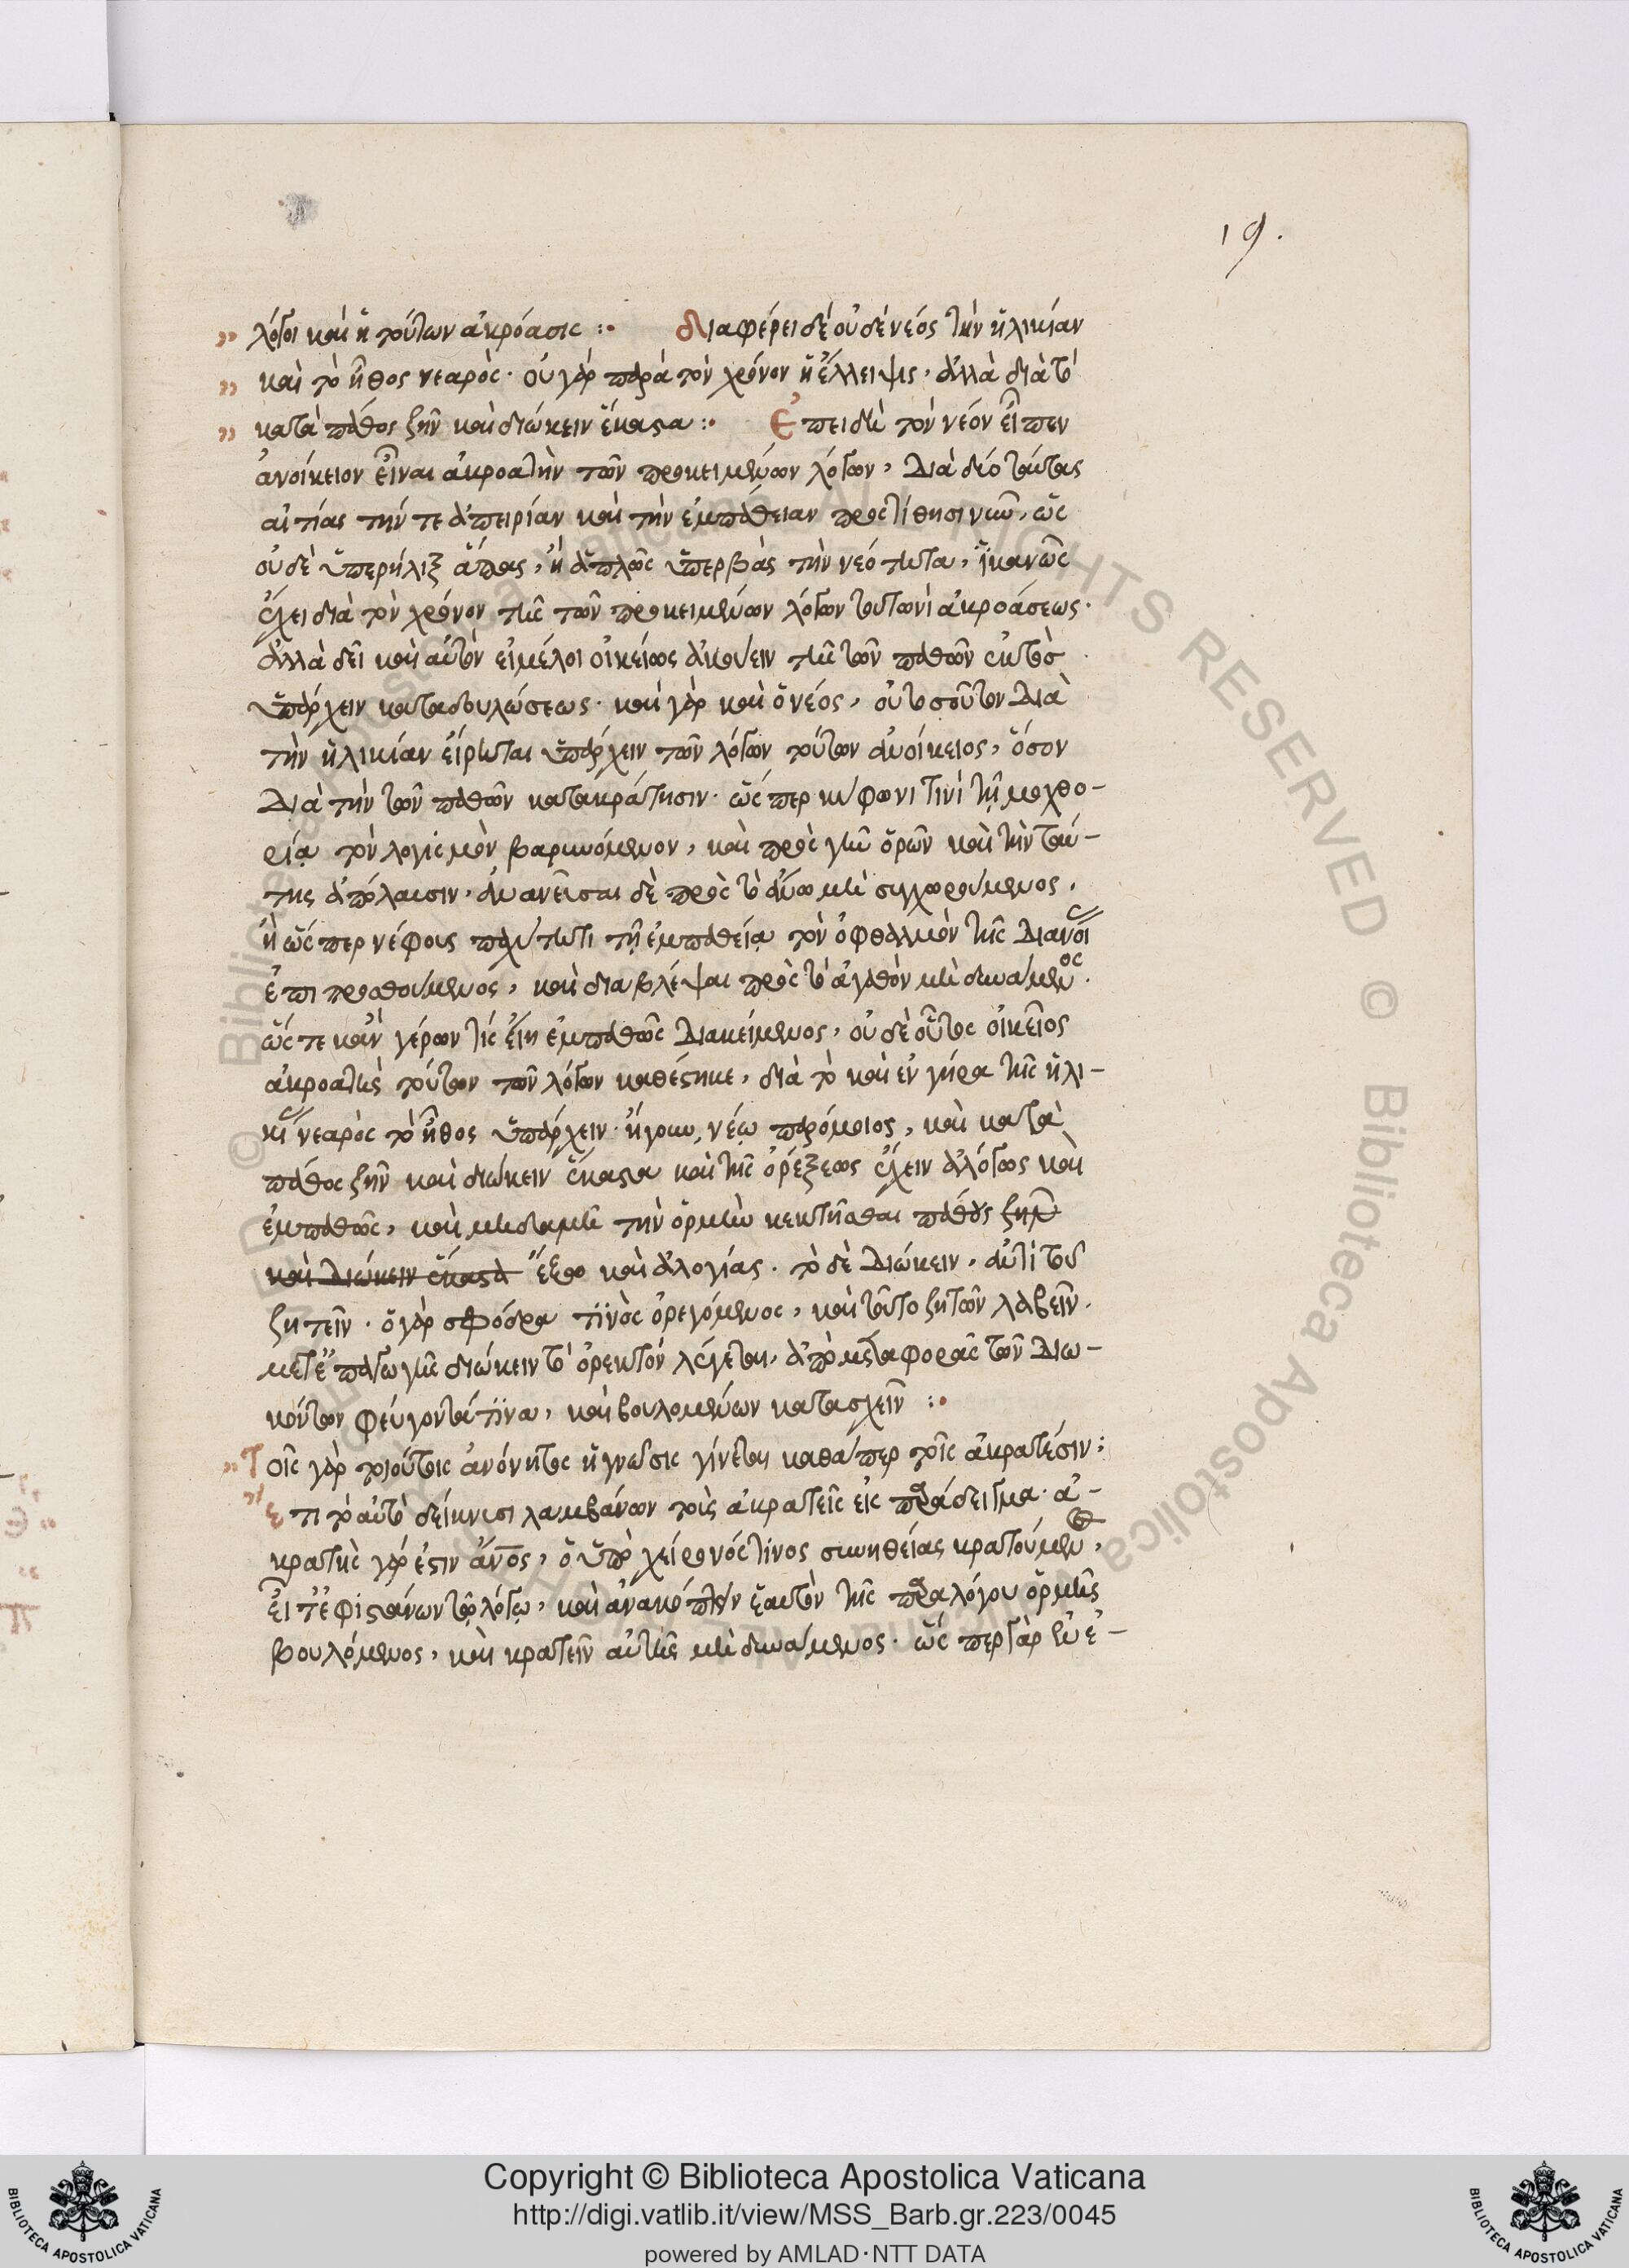 19.
„ λόγοι καὶ ἡ τούτων ἀκρόασις :· διαφέρει δὲ οὐδὲ νέος τὴν ἡλικίαν
„ καὶ τὸ ἦθος νεαρὸς· οὐ γὰρ παρὰ τὸν χρόνον ἡ ἔλλειψις, ἀλλὰ διὰ τὸ
„ κατὰ πάθος ζῆν καὶ διώκειν ἕκαστα :· Ἐπειδὴ τὸν νέον εἶπεν
ἀνοίκειον εἶναι ἀκροατὴν τῶν προκειμένων λόγων, διὰ δύο ταύτας
αἰτίας τήν τε ἀπειρίαν καὶ τὴν ἐμπάθειαν προςτίθησι νῦν, ὡς
οὐδὲ ὑπερήλιξ ἅπας, ἢ ἁπλῶς ὑπερβὰς τὴν νεότητα, ἱκανῶς
ἔχει διὰ τὸν χρόνον τῆς τῶν προκειμένων λόγων τουτωνὶ ἀκροάσεως·
ἀλλὰ δεῖ καὶ αὐτὸν εἰ μέλοι οἰκείως ἀκούειν τῆς τῶν παθῶν ἐκτὸς
ὑπάρχειν καταδουλώσεως· καὶ γὰρ καὶ ὁ νέος, οὐ τοσοῦτον διὰ
τὴν ἡλικίαν εἴρηται ὑπάρχειν τῶν λόγων τούτων ἀνοίκειος, ὅσον
διὰ τὴν τῶν παθῶν κατακράτησιν· ὥςπερ κύφωνι τινὶ τῇ μοχθη-
ρίᾳ τὸν λογισμὸν βαρυνόμενον, καὶ πρὸς γῆν ὁρῶν καὶ τὴν ταύ-
της ἀπόλαυσιν, ἀνανεῦσαι δὲ πρὸς τὸ ἄνω μὴ συγχωρούμενος,
ἢ ὥςπερ νέφους παχύτητι τῇ ἐμπαθείᾳ τὸν ὀφθαλμὸν τῆς διανοίας
ἐπιπροσθούμενος, καὶ διαβλέψαι πρὸς τὸ ἀγαθὸν μὴ δυνάμενος.
ὥςτε κἂν γέρων τίς εἴη ἐμπαθῶς διακείμενος, οὐδὲ οὗτος οἰκεῖος
ἀκροατὴς τούτων τῶν λόγων καθέστηκε, διὰ τὸ καὶ ἐν γήρα τῆς ἡλι-
κίας νεαρὸς τὸ ἦθος ὑπάρχειν· ἤγουν νέῳ παρόμοιος, καὶ κατὰ
πάθος ζῆν καὶ διώκειν ἕκαστα καὶ τῆς ὀρέξεως ἔχειν ἀλόγως καὶ
ἐμπαθῶς, καὶ μεστὴν τὴν ὁρμὴν κεκτῆσθαι πάθους ζῆν
καὶ διώκειν ἕκαστα ἔξω καὶ ἀλογίας. τὸ δὲ διώκειν, ἀντὶ τοῦ
ζητεῖν. ὁ γὰρ σφόδρα τινὸς ὀρεγόμενος, καὶ τοῦτο ζητῶν λαβεῖν.
διώκειν τὸ ὀρεκτὸν λέγεται, ἀπὸ μεταφορᾶς τῶν διω-
κόντων φεύγοντά τινα, καὶ βουλομένων κατασχεῖν :·
„ Τοῖς γὰρ τοιούτοις ἀνόνητος ἡ γνῶσις γίνεται καθάπερ τοῖς ἀκρατέσιν:
ἔτι τὸ αὐτὸ δείκνυσι λαμβάνων τοὺς ἀκρατεῖς εἰς παράδειγμα· ἀ-
κρατὴς γάρ ἐστιν ἄνος, ὁ ὑπὸ χείρονός τινος συνηθείας κρατούμενος,
εἶτ' ἐφιστάνων τῷ λόγῳ, καὶ ἀνακόπτειν ἑαυτὸν τῆς παραλόγου ὁρμῆς
βουλόμενος, καὶ κρατεῖν αὐτῆς μὴ δυνάμενος. ὥςπερ γὰρ ἐν ἐ-
Copyright © Biblioteca Apostolica Vaticana
http://digi.vatlib.it/view/MSS_Barb.gr.223/0045
powered by AMLAD·NTT DATA